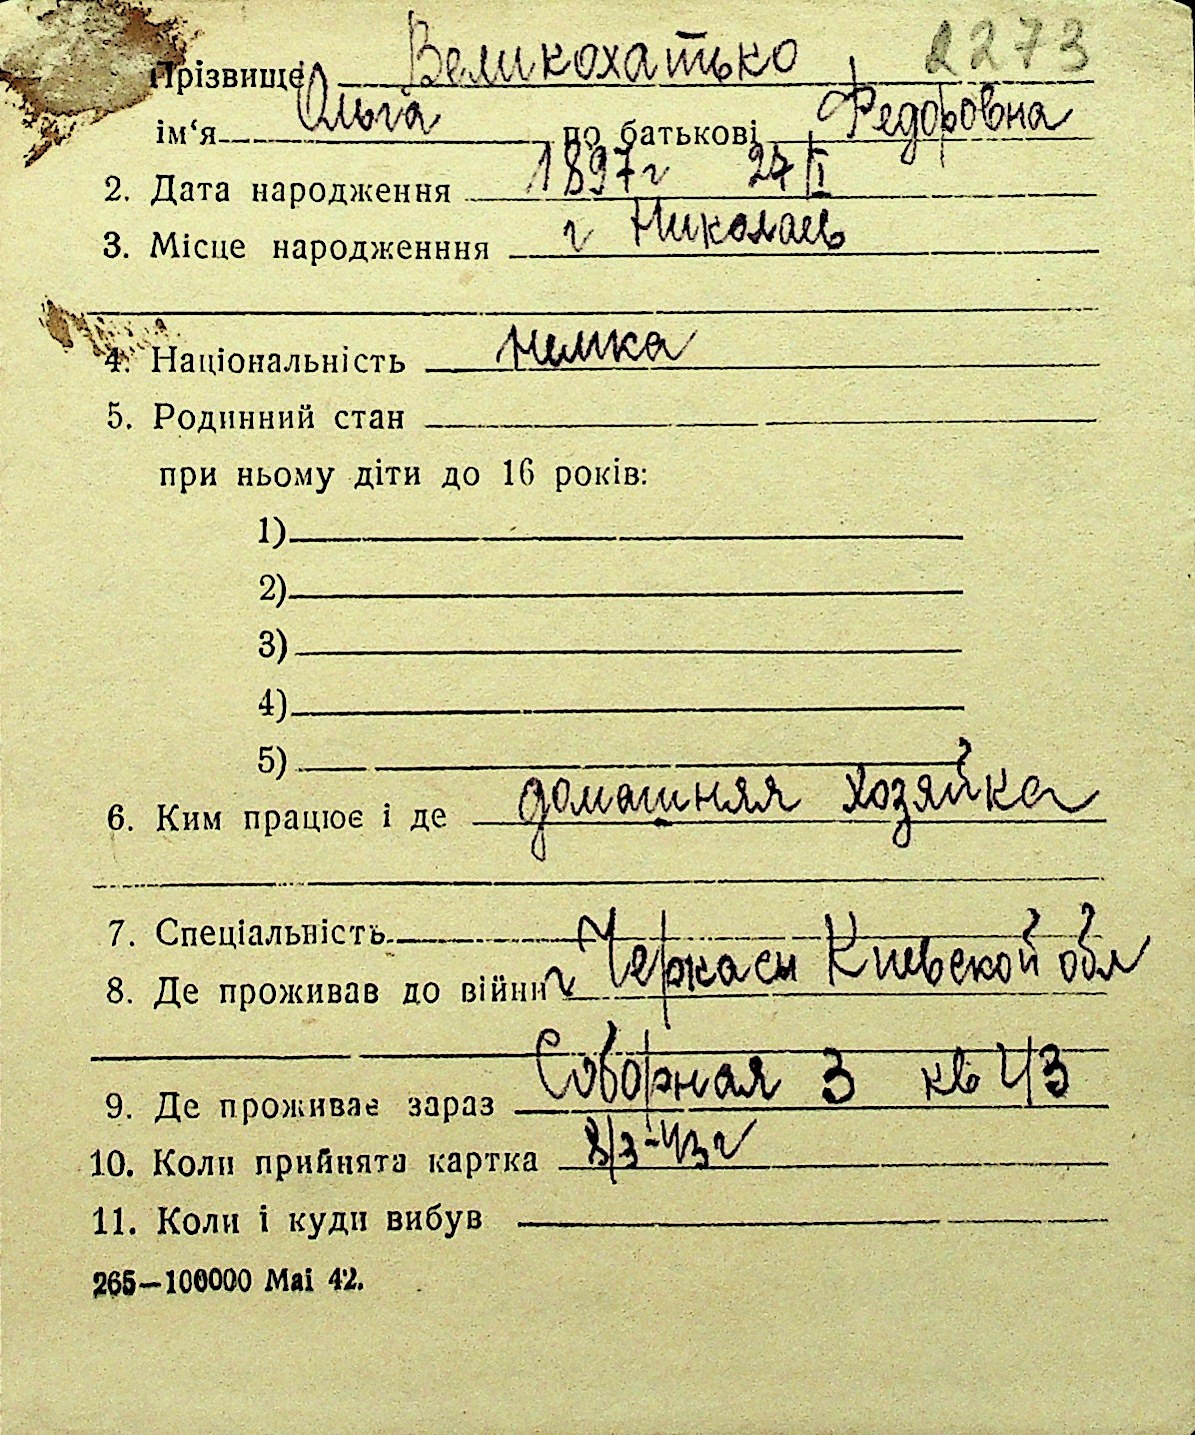 Прізвище Великохатько 2273
ім‘я Ольга по батькові Федоровна
2. Дата народження 1897г 24/I
3. Місце народженння г Николаев
4. Національність немка
5. Родинний стан
при ньому діти до 16 років:
1)
2)
3)
4)
5)
6. Ким працює і де домашняя хозяйка
7. Спеціальність
8. Де проживав до війни г Черкасы Киевской обл
9. Де проживає зараз Соборная 3 кв 43
10. Коли прийнята картка 8/3-43г
11. Коли і куди вибув
265—100000 Mai 42.